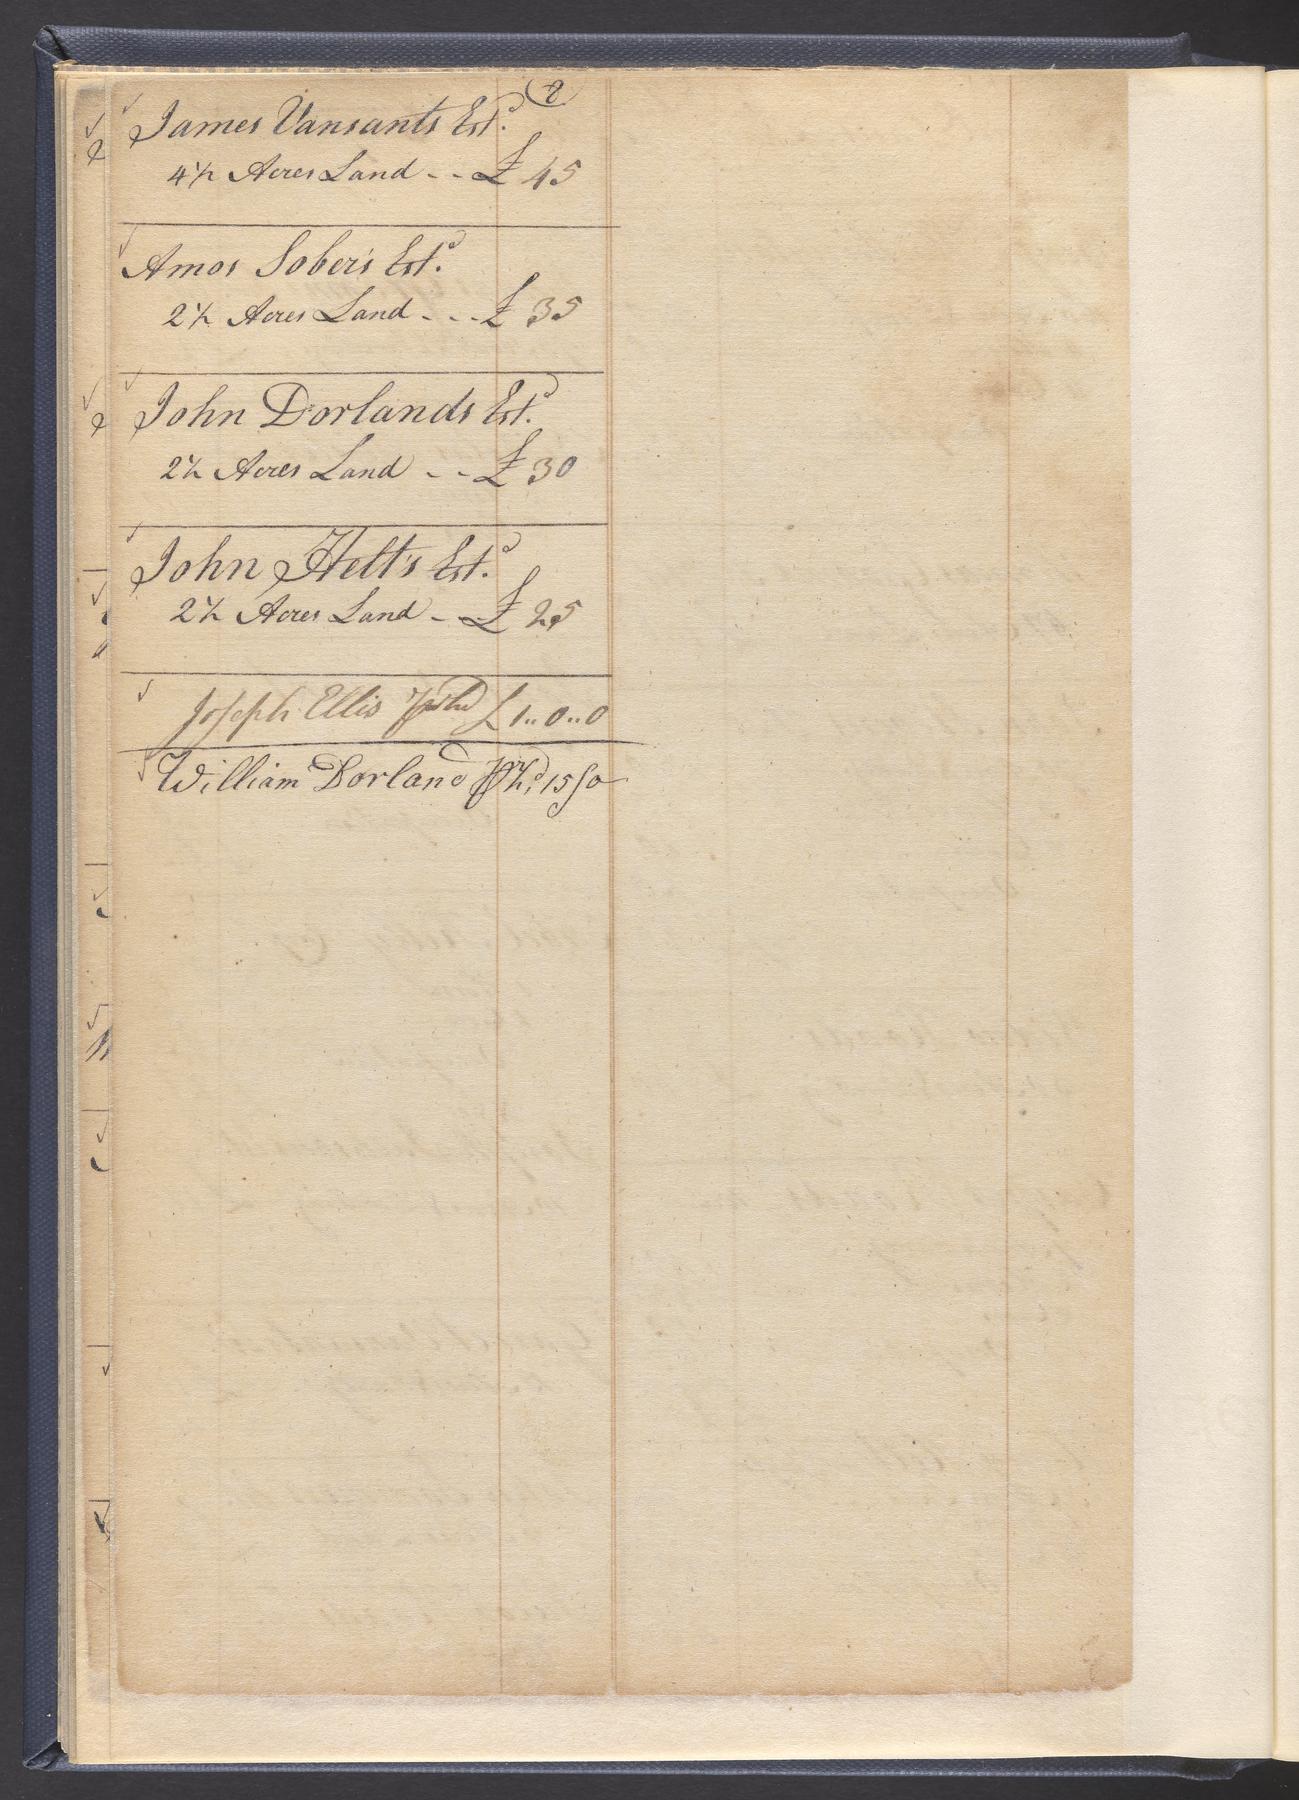 2
James Vansants Est.d
4½ Acres Land - - £ 45
Amos Sober's Est.d
2½ Acres Land - - - £ 35
John Dorlands Est.d
2½ Acres Land - - £ 30
John Helt's Est.d
2½ Acres Land - - £ 25
Joseph Ellis £ 1..0..0
William Dorland 15/0